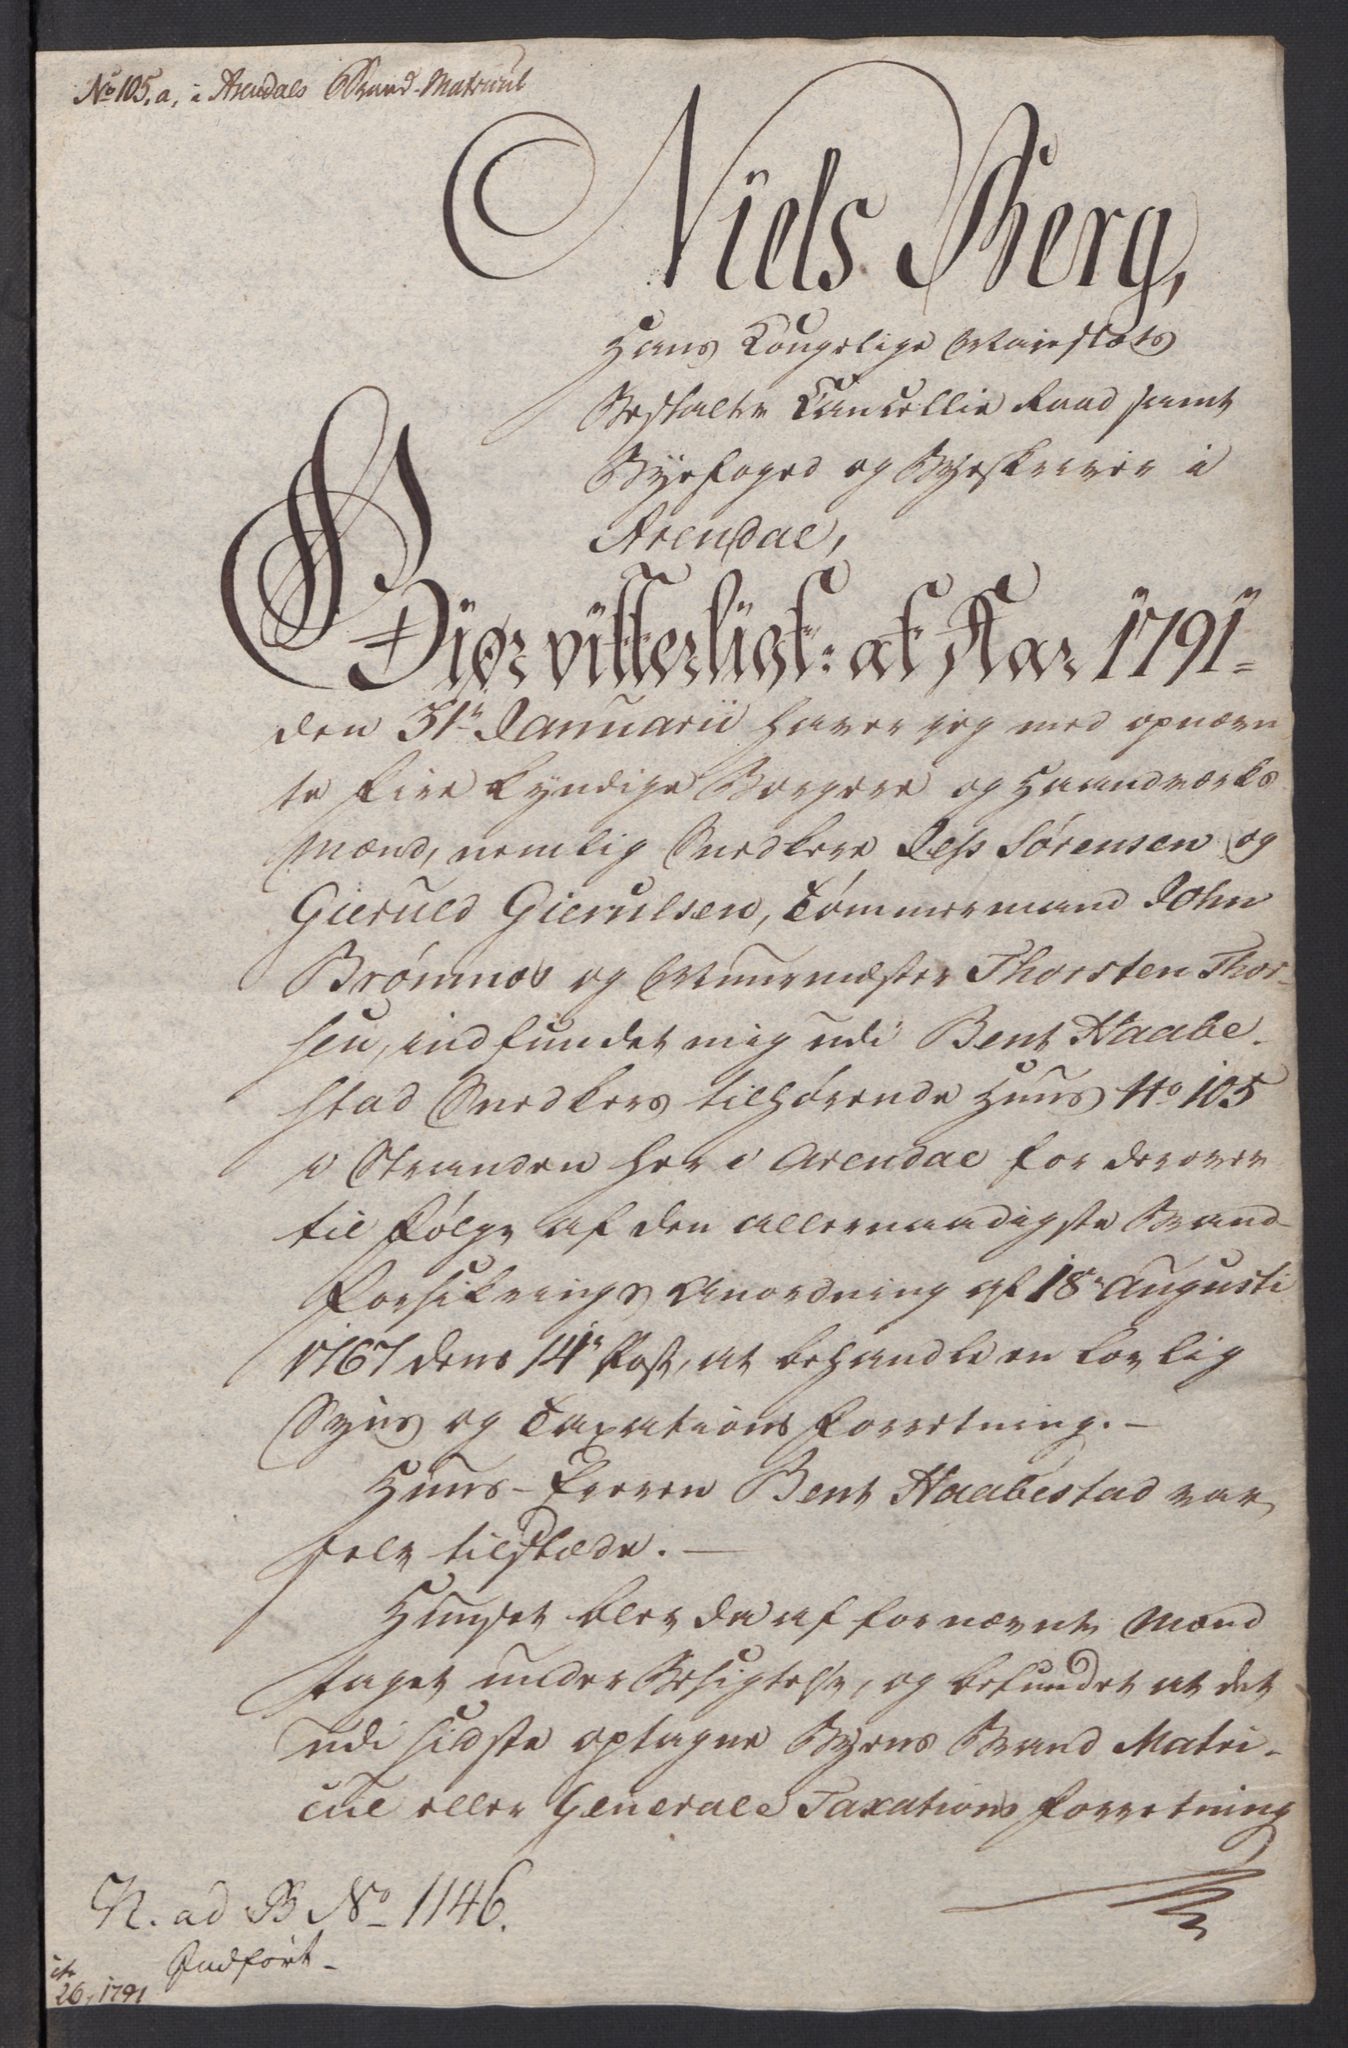 No 105, a, i Arendals Brand-Matricul
Niels Berg,
Hans Kongelige Maiestæts
Bestalter Cancellie Raad samt
Byefoged og Byeskriver i
Arendal,
Giør vitterligt: at Aar 1791
den 31te Januarii haver jeg med opnævn
te fire kyndige Borgere og Haandværks
Mænd, nemlig Snedkere Jess Sørensen og
Gieruld Gierulsen, Tømmermand John
Brømnes og Muurmæster Thorsten Thor-
sen, indfundet mig udi Bent Haabe-
stad Snedkers tilhørende Huus No 105
i Stranden her i Arendal for derover
til følge af den allernaadigste Brand-
Forsikrings Anordning af 18de Augusti
1767 dens 14de Post, at behandle en lovlig
Syns og Taxations Forretning. —
Huus-Eieren Bent Haabestad var
selv tilstæde. —
Huuset blev da af fornævnte Mænd
taget under Besigtelse, og befundet at det
udi sidste optagne Byens Brand Matri-
cul eller Generale Taxations Forretning
N. ad B No 1146.
Indført -
26, 1791